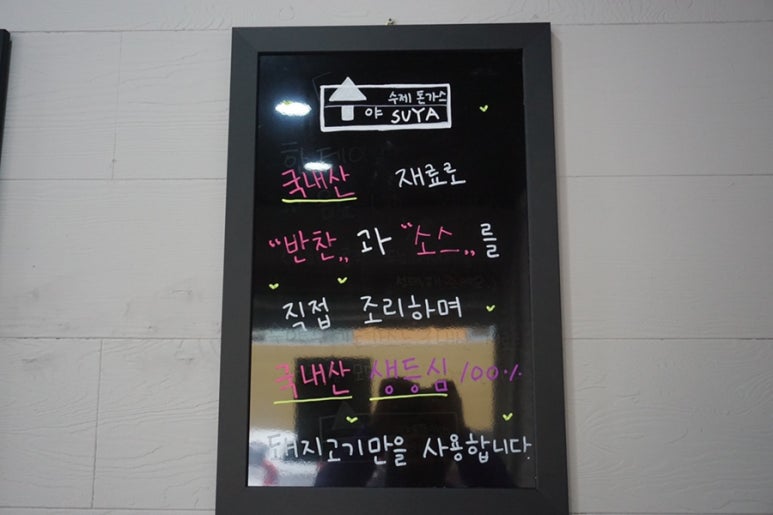 수제 돈가스
야 SUYA
국내산 재료로
“반찬„ 과 “소스„ 를
직접 조리하며
국내산 생등심 100%
돼지고기만을 사용합니다